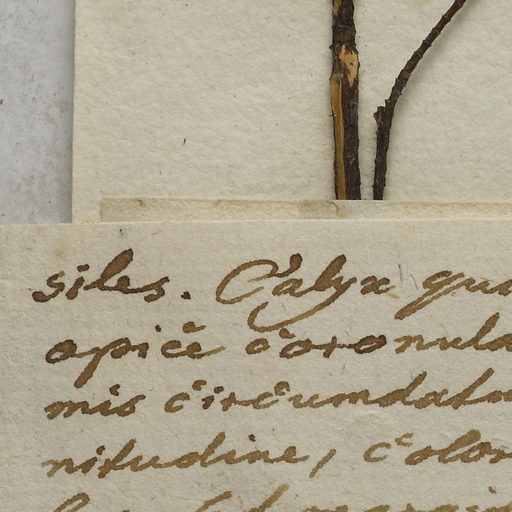 siles. Calyx qua
apice coronula
mis circumdatu
nitudine, color